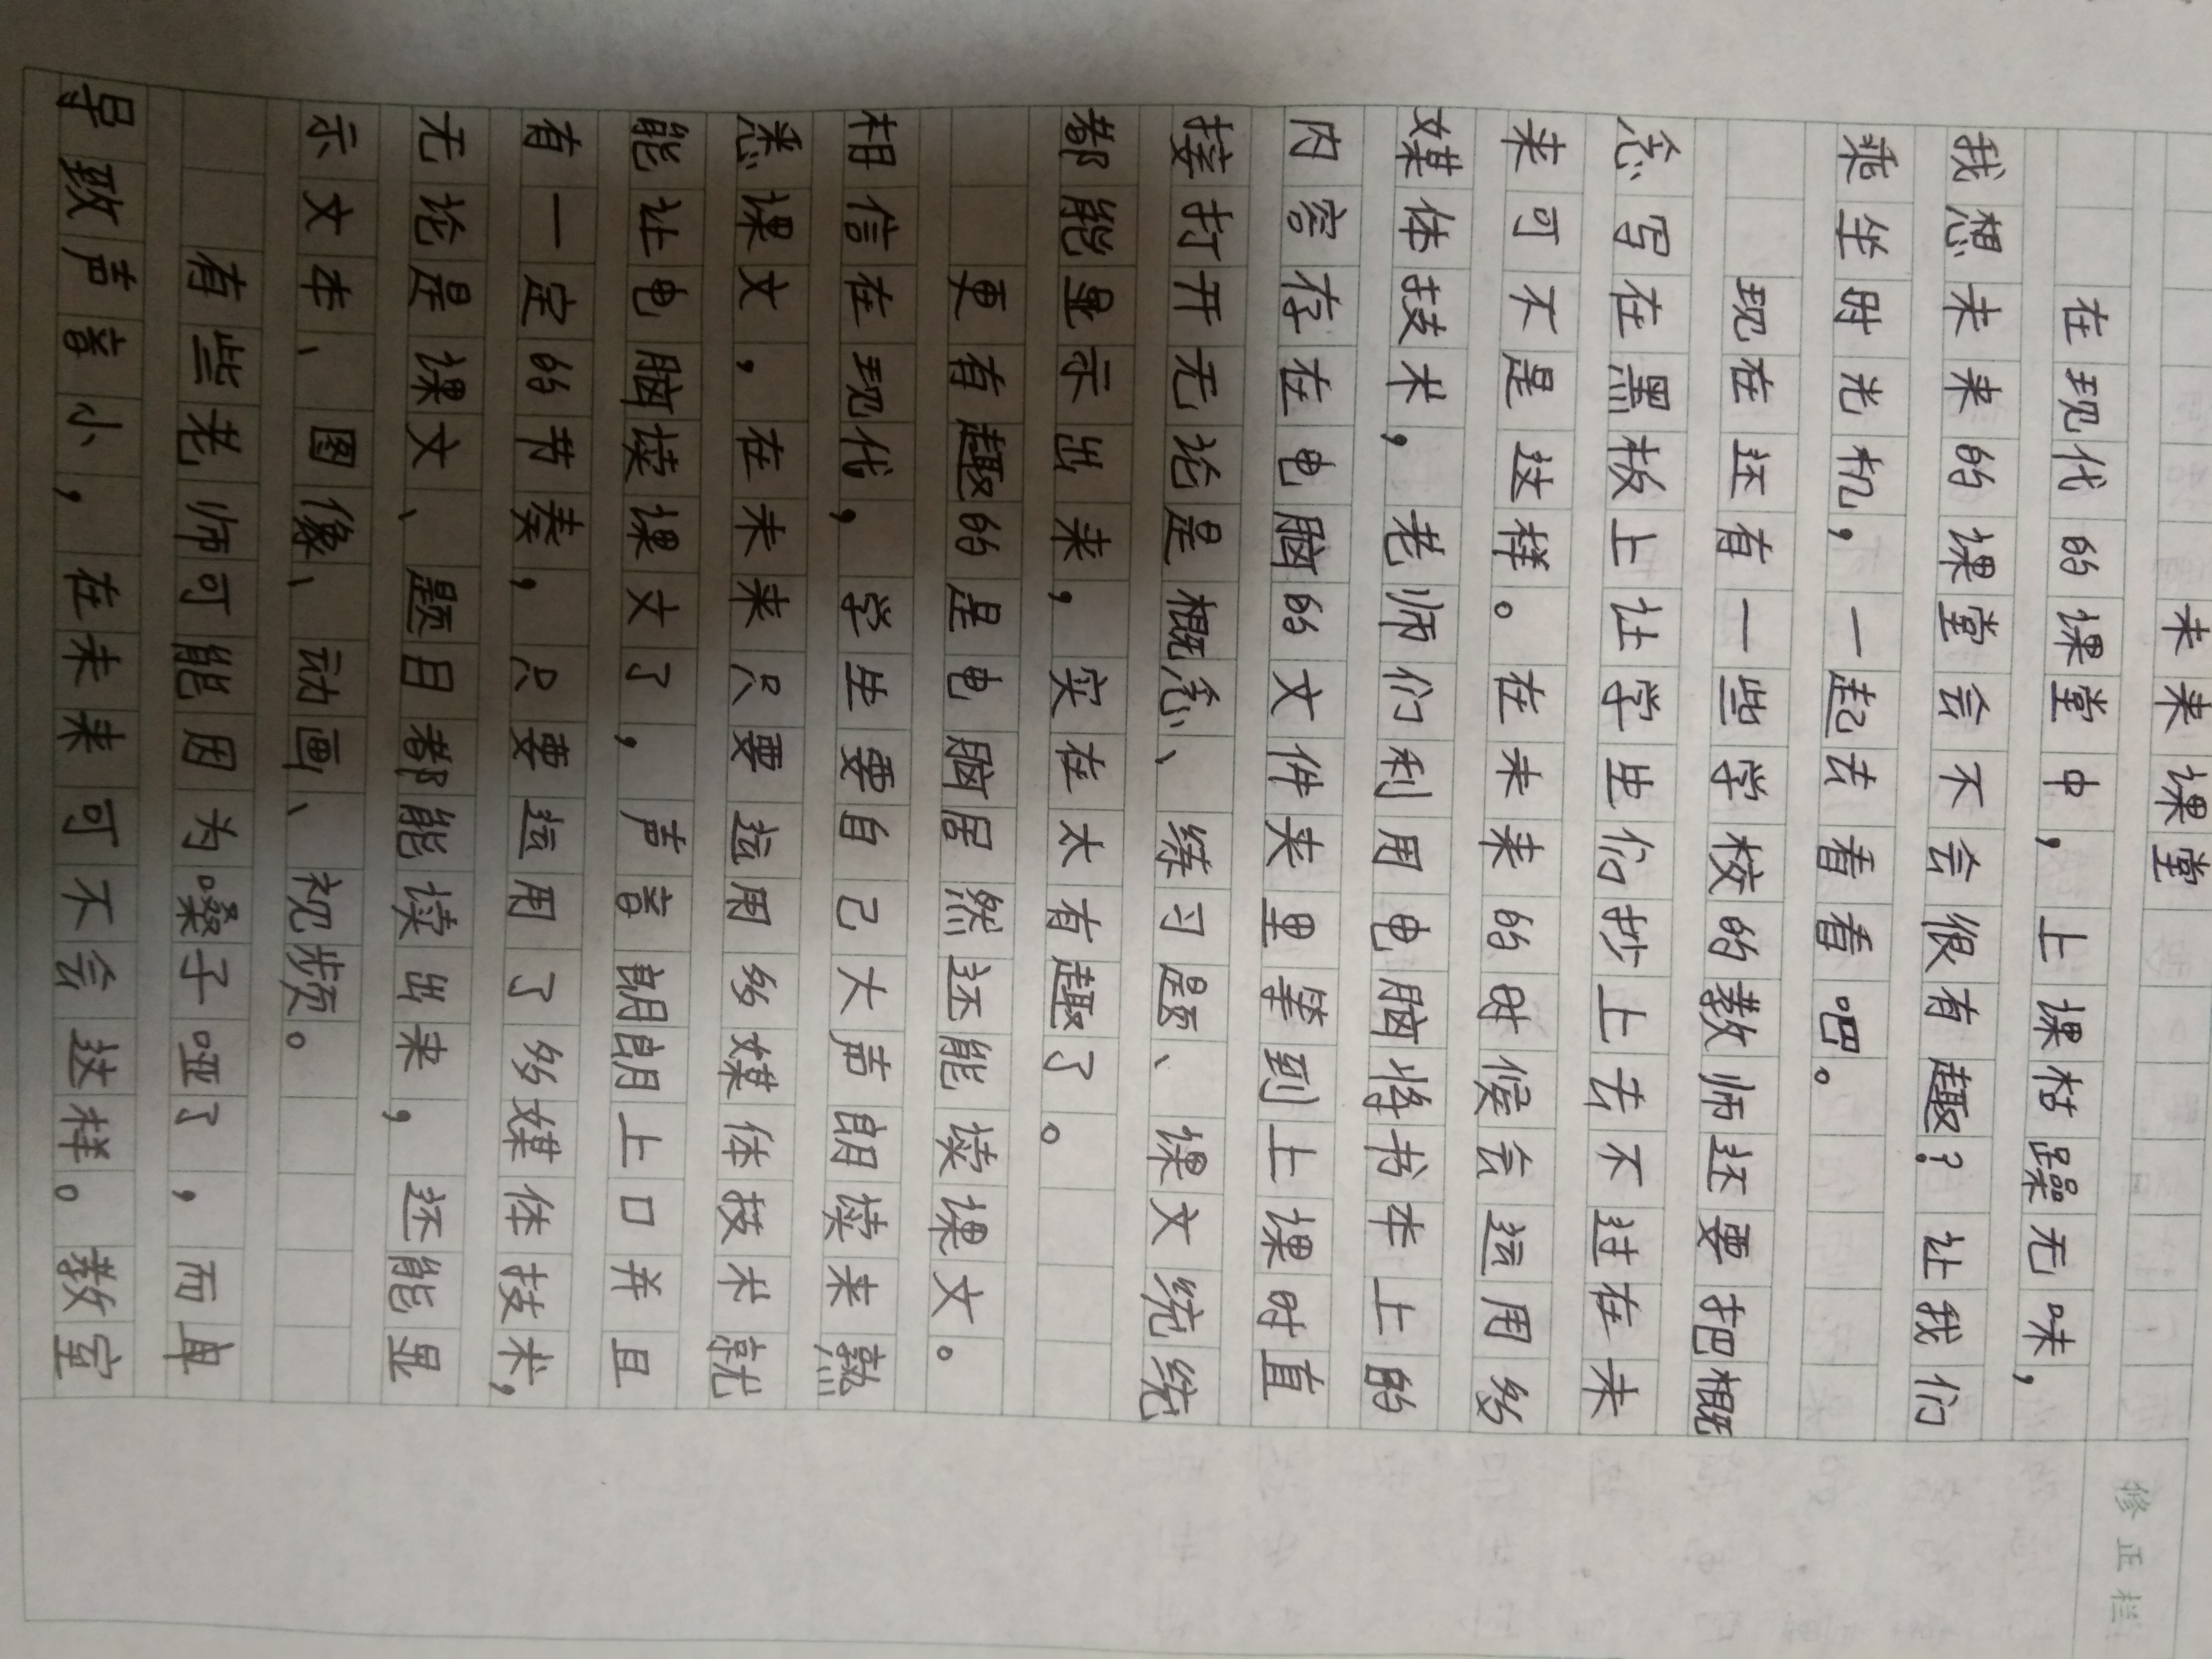 未来课堂
在现代的课堂中，上课枯躁无味，
我想未来的课堂会不会很有趣？让我们
乘坐时光机，一起去看看吧。
现在还有一些学校的教师还要把概
念写在黑板上让学生们抄上去不过在未
来可不是这样。在未来的时候会运用多
媒体技术，老师们利用电脑将书本上的
内容存在电脑的文件夹里等到上课时直
接打开无论是概念、练习题、课文统统
都能显示出来，实在太有趣了。
更有趣的是电脑居然还能读课文。
相信在现代，学生要自己大声朗读来熟
悉课文，在未来只要运用多媒体技术就
能让电脑读课文了，声音朗朗上口并且
有一定的节奏，只要运用了多媒体技术，
无论是课文、题目都能读出来，还能显
示文本、图像、动画、视频。
有些老师可能因为嗓子哑了，而且
导致声音小，在未来可不会这样。教室
修正栏